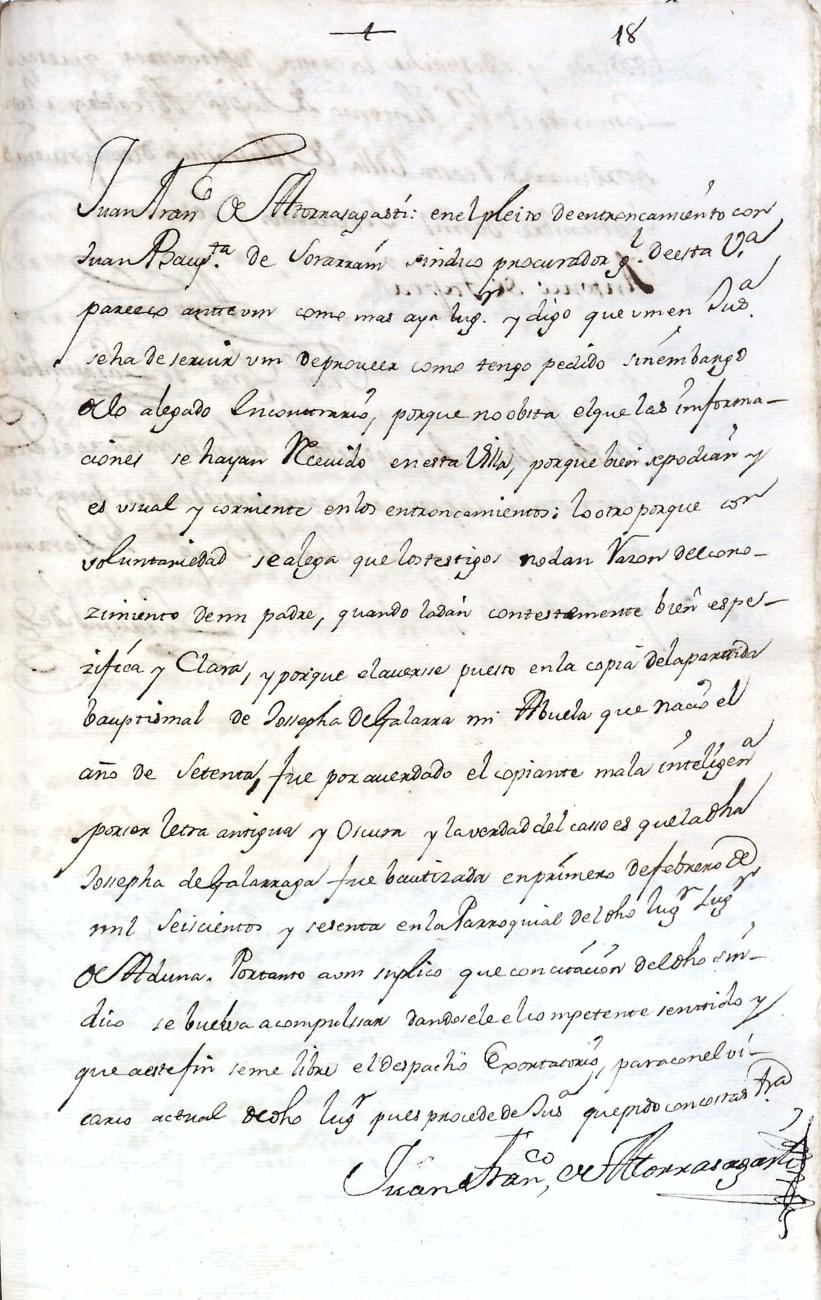 18
Juan Fran.co de Atorrasagasti: en el pleito de entroncamiento con
Juan Baup.ta de Sorarrain sindico procurador g.l de esta V.a
parezco ante vm como mas aya lug.r y digo que vm en Jus.a
se ha de servir vm de proveer como tengo pedido sin embargo
de lo alegado Encontrario, porque no obsta el que las informa-
ciones se hayan Recevido en esta Villa, porque bien se podian y
es usual y corriente en los entroncamientos: lo otro porque con
voluntariedad se alega que los testigos no dan Razon del cono-
zimiento de mi padre, quando la dan contestemente bien espe-
zifica y Clara, y porque el averse puesto en la copia de la partida
bauptismal de Jossepha de Galarra mi Abuela que nacio el
año de setenta, fue por averdado el copiante mala inteligen.a
por ser letra antigua y Oscura y la verdad del casso es que la dha
Jossepha de Galarraga fue bautizada en primero de febrero de
mil Seiscientos y sesenta en la Parroquial del dho lug.r Lug.r
de Aduna. Portanto a vm suplico que con citacion del dho sin-
dico se buelva a compulssar dandosele el competente senttido y
que a este fin se me libre el despacho Exortatorio, para con el vi-
cario actual de dho lug.r pues procede de Jus.a que pido con costas &.a
Juan Fran.co de Atorrasagasti